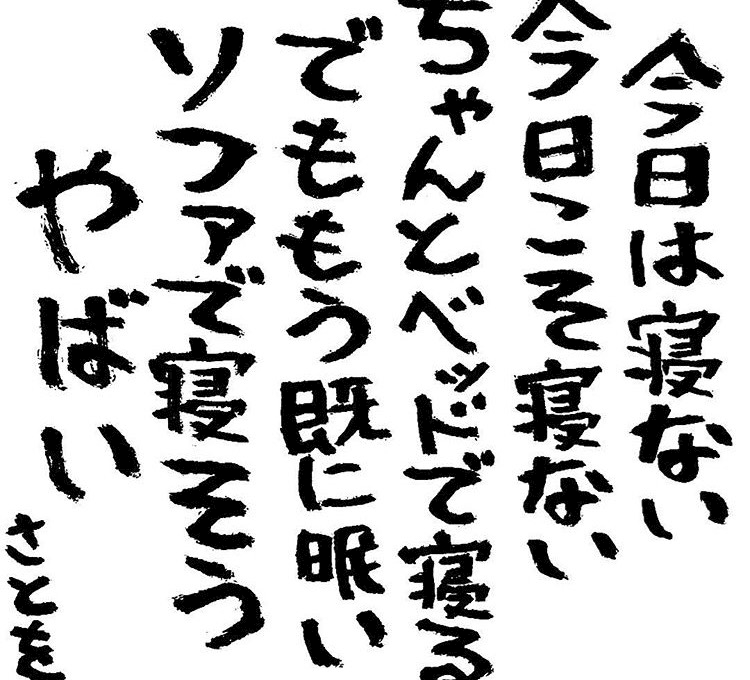 今日は寝ない
今日こそ寝ない
ちゃんとベッドで寝る
でももう既に眠い
ソファで寝そう
やばい
さとを